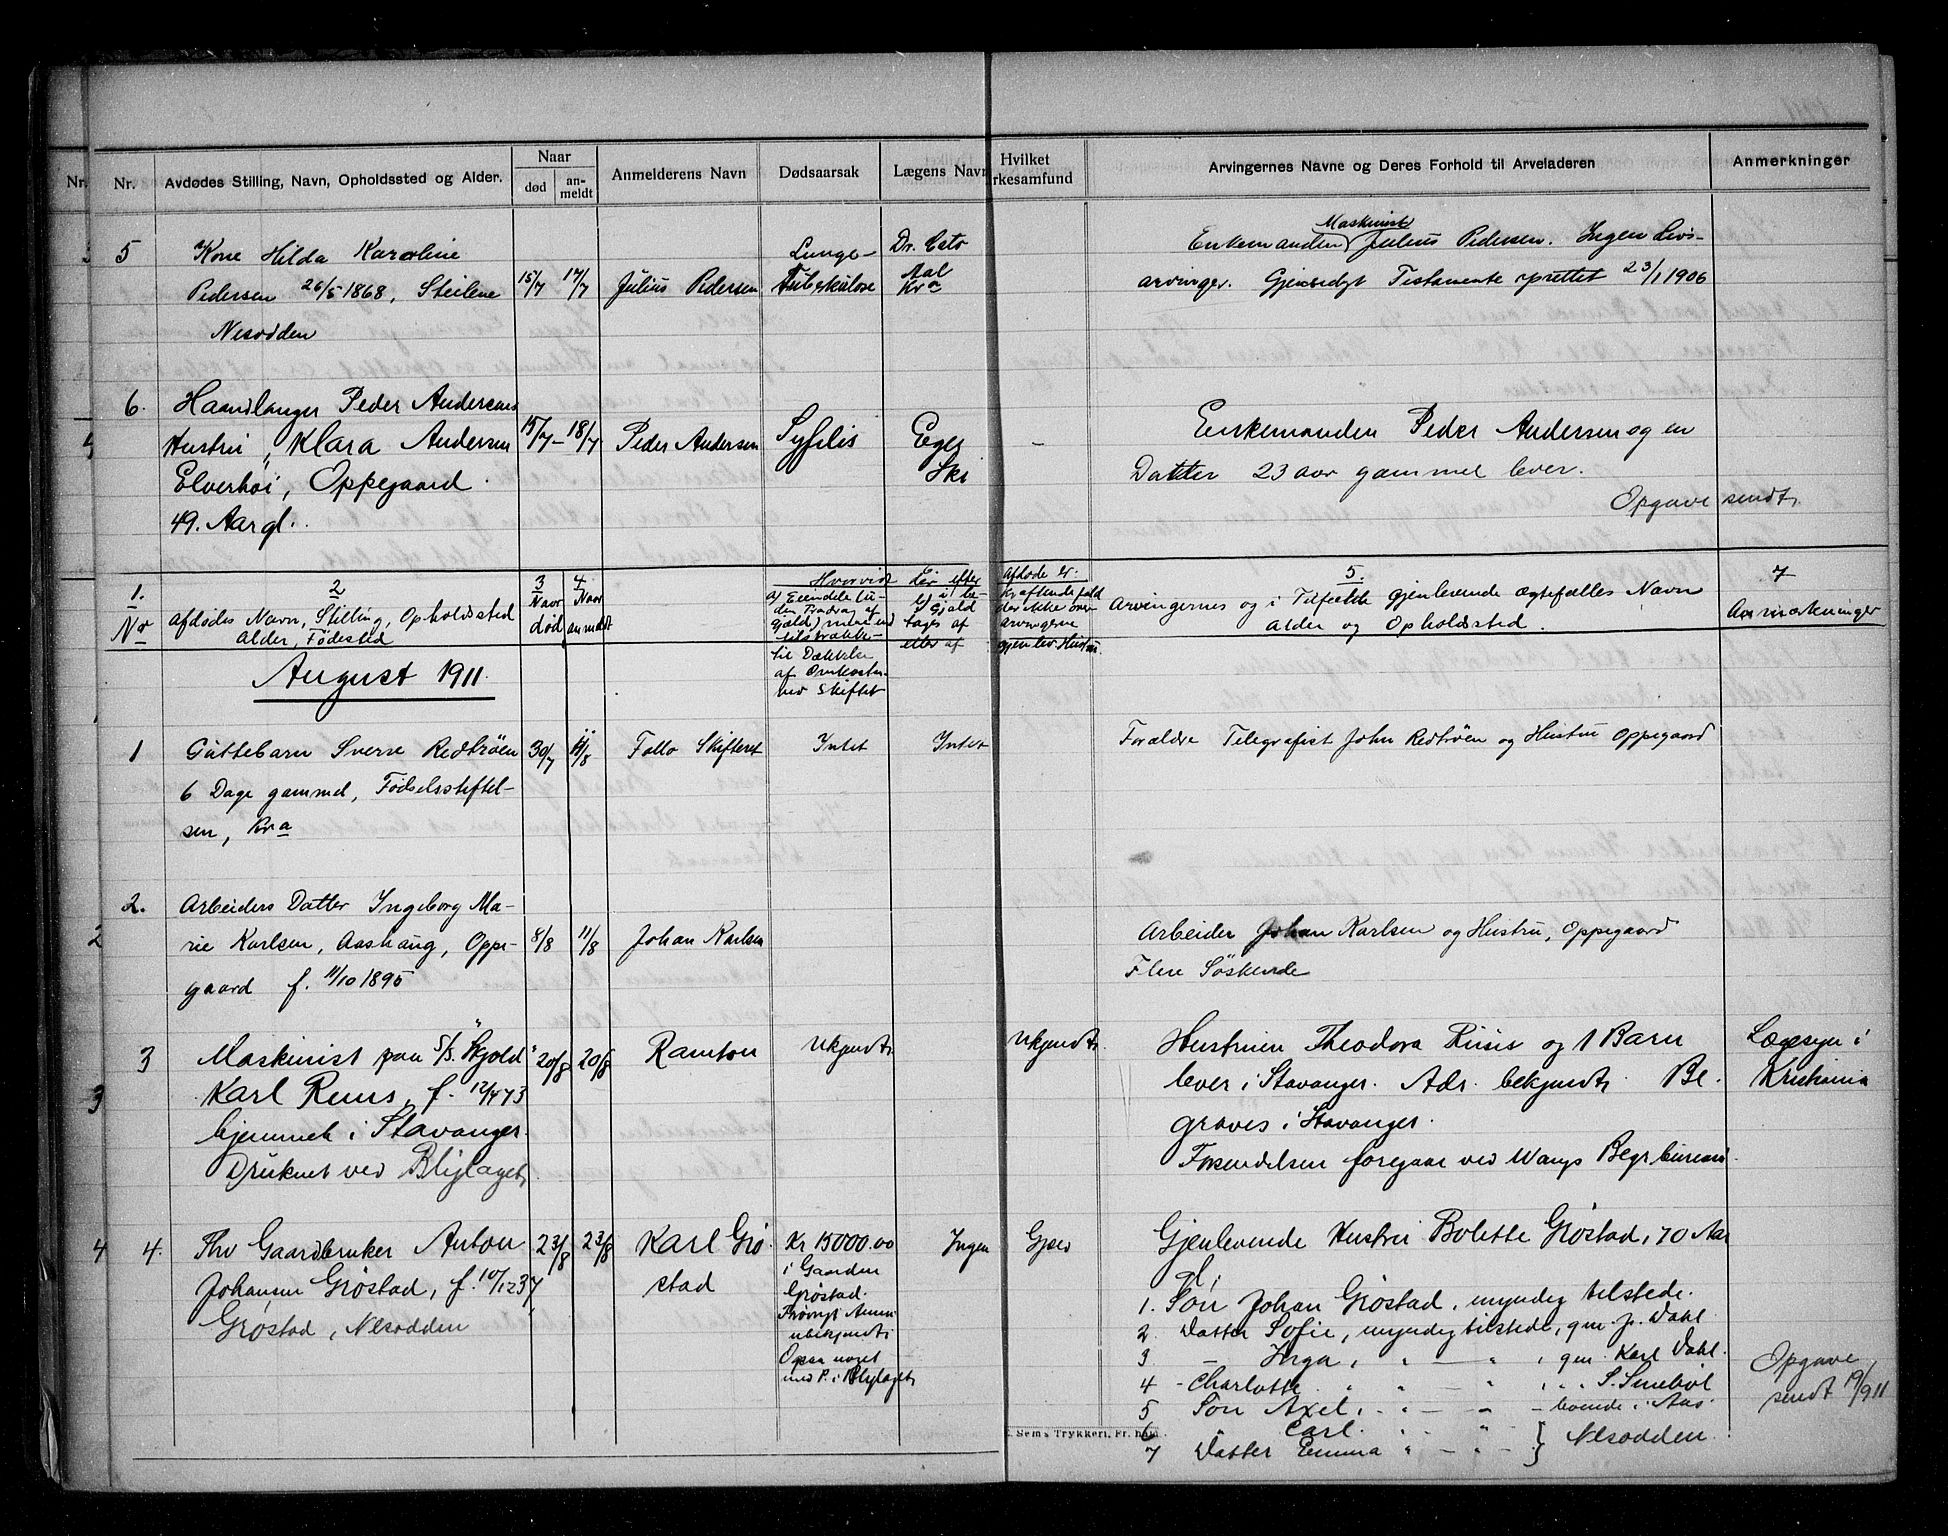 Nr. Nr. Avdødes Stilling, Navn, Opholdssted og Alder. Naar død an-meldt Anmelderens Navn Dødsaarsak Lægens Navn Hvilket rkesamfund Arvingernes Navne og Deres Forhold til Arveladeren Anmerkninger
5 Kone Hilda Karoline
Pedersen 26/5 1868, Steilene
Nesodden
15/7 17/7 Julius Pedersen
Lunge-
Tuberkulose
Dr. Cato
Aal
Kra
Enkemanden Maskinist Julius Pedersen. Ingen Livs-
arvinger. Gjensidigt Testamente oprettet 23/1 1906
6. Haandlanger Peder Andersens
Hustru, Klara Andersen
Elverhøi, Oppegaard.
49. Aar gl.
15/7 - 18/7 Peder Andersen Syfilis
Eger
Ski
-
Enkemanden Peder Andersen og en
Datter 23 aar gammel lever.
Opgave sendt.
1.
No
2
Afdødes Navn, Stilling, Opholdssted
Alder, Fødested
3
Naar
død
4
Naar
anmeldt
Hvorvidt der efter Afdøde er:
5.
Arvingernes og i Tilfælde gjenlevende ægtefælles Navn
Alder og Opholdssted.
7
Anmærkninger
til Dækkelse
af Omkostn.
ved Skiftet
August 1911.
1 Guttebarn Sverre Redtrøen
6 Dage gammel, Fødselsstiftel-
sen, Kra
30/7 11/8 Follo Skifteret Intet Intet
Forældre Telegrafist John Redtrøen og Hustru Oppegaard
2. Arbeiders Datter Ingeborg Ma-
rie Karlsen, Aashaug, Oppe-
gaard f. 11/10 1895
8/8 11/8 Johan Karlsen
Arbeider Johan Karlsen og Hustru, Oppegaard
Flere Søskende
3 Maskinist paa S/S. "Skjold"
Karl Reuss, f. 12/4 73
hjemmeh. i Stavanger.
Druknet ved Blylaget.
20/8 20/8 Ramton Ukjendt. Ukjendt.
Hustruen Theodora Riisis og 1 Barn
lever i Stavanger. Adr. bekjendt. Be-
graves i Stavanger.
Forsendelsen foregaar ved Wangs Begr.bureau.
Lægesyn i
Kristiania
4. Fhv Gaardbruker Anton
Johansen Grøstad, f. 10/12 37
Grøstad, Nesodden
23/8 23/8 Karl Grø
stad
Kr 15000.00
i Gaarden
Grøstad.
Forøvrigt Anmm
ubekjendt.
Opsa noget
med P. i Blylaget.
Ingen Gjsev
Gjenlevende Hustru Bolette Grøstad, 70 Aar
gl,
1. Søn Johan Grøstad, myndig tilstede.
2. Datter Sofie, myndig tilstede, gm. J. Dahl
3 - Inga, " - " , gm. Karl Dahl.
4 - Charlotte " " - " , " " S. Smebøl
5 Søn Axel, - " - " - boende i Aas.
6 " Carl. " - "
7 Datter Emma " - " } Nesodden
Opgave
sendt 19/9 11
Sem's Trykkeri, Fr.hald.